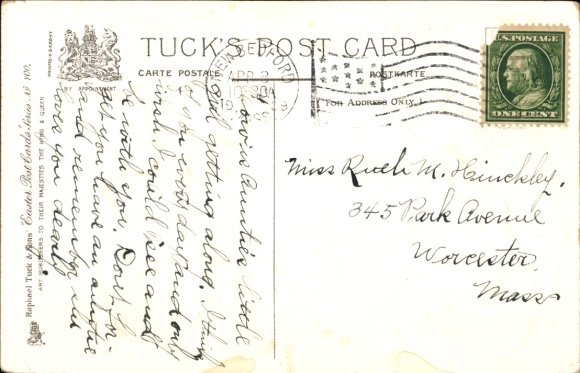 TUCK'S POST CARD
CARTE POSTALE
POSTKARTE
(FOR ADDRESS ONLY.)
BY APPOINTMENT
PRINTED IN SAXONY
NEW BEDFORD
APR 9
10 30A
1909
U.S. POSTAGE
ONE CENT
Miss Ruth M. Hinckley.
345 Park Avenue
Worcester,
Mass
Raphael Tuck & Sons' "Easter" Post Cards Series No 700.
ART PUBLISHERS TO THEIR MAJESTIES THE KING & QUEEN
Auntie's little
girl getting along. I think
o you every day and only
wish I could see and
be with you. Don't
you have an auntie
and remember she
loves you dearly.